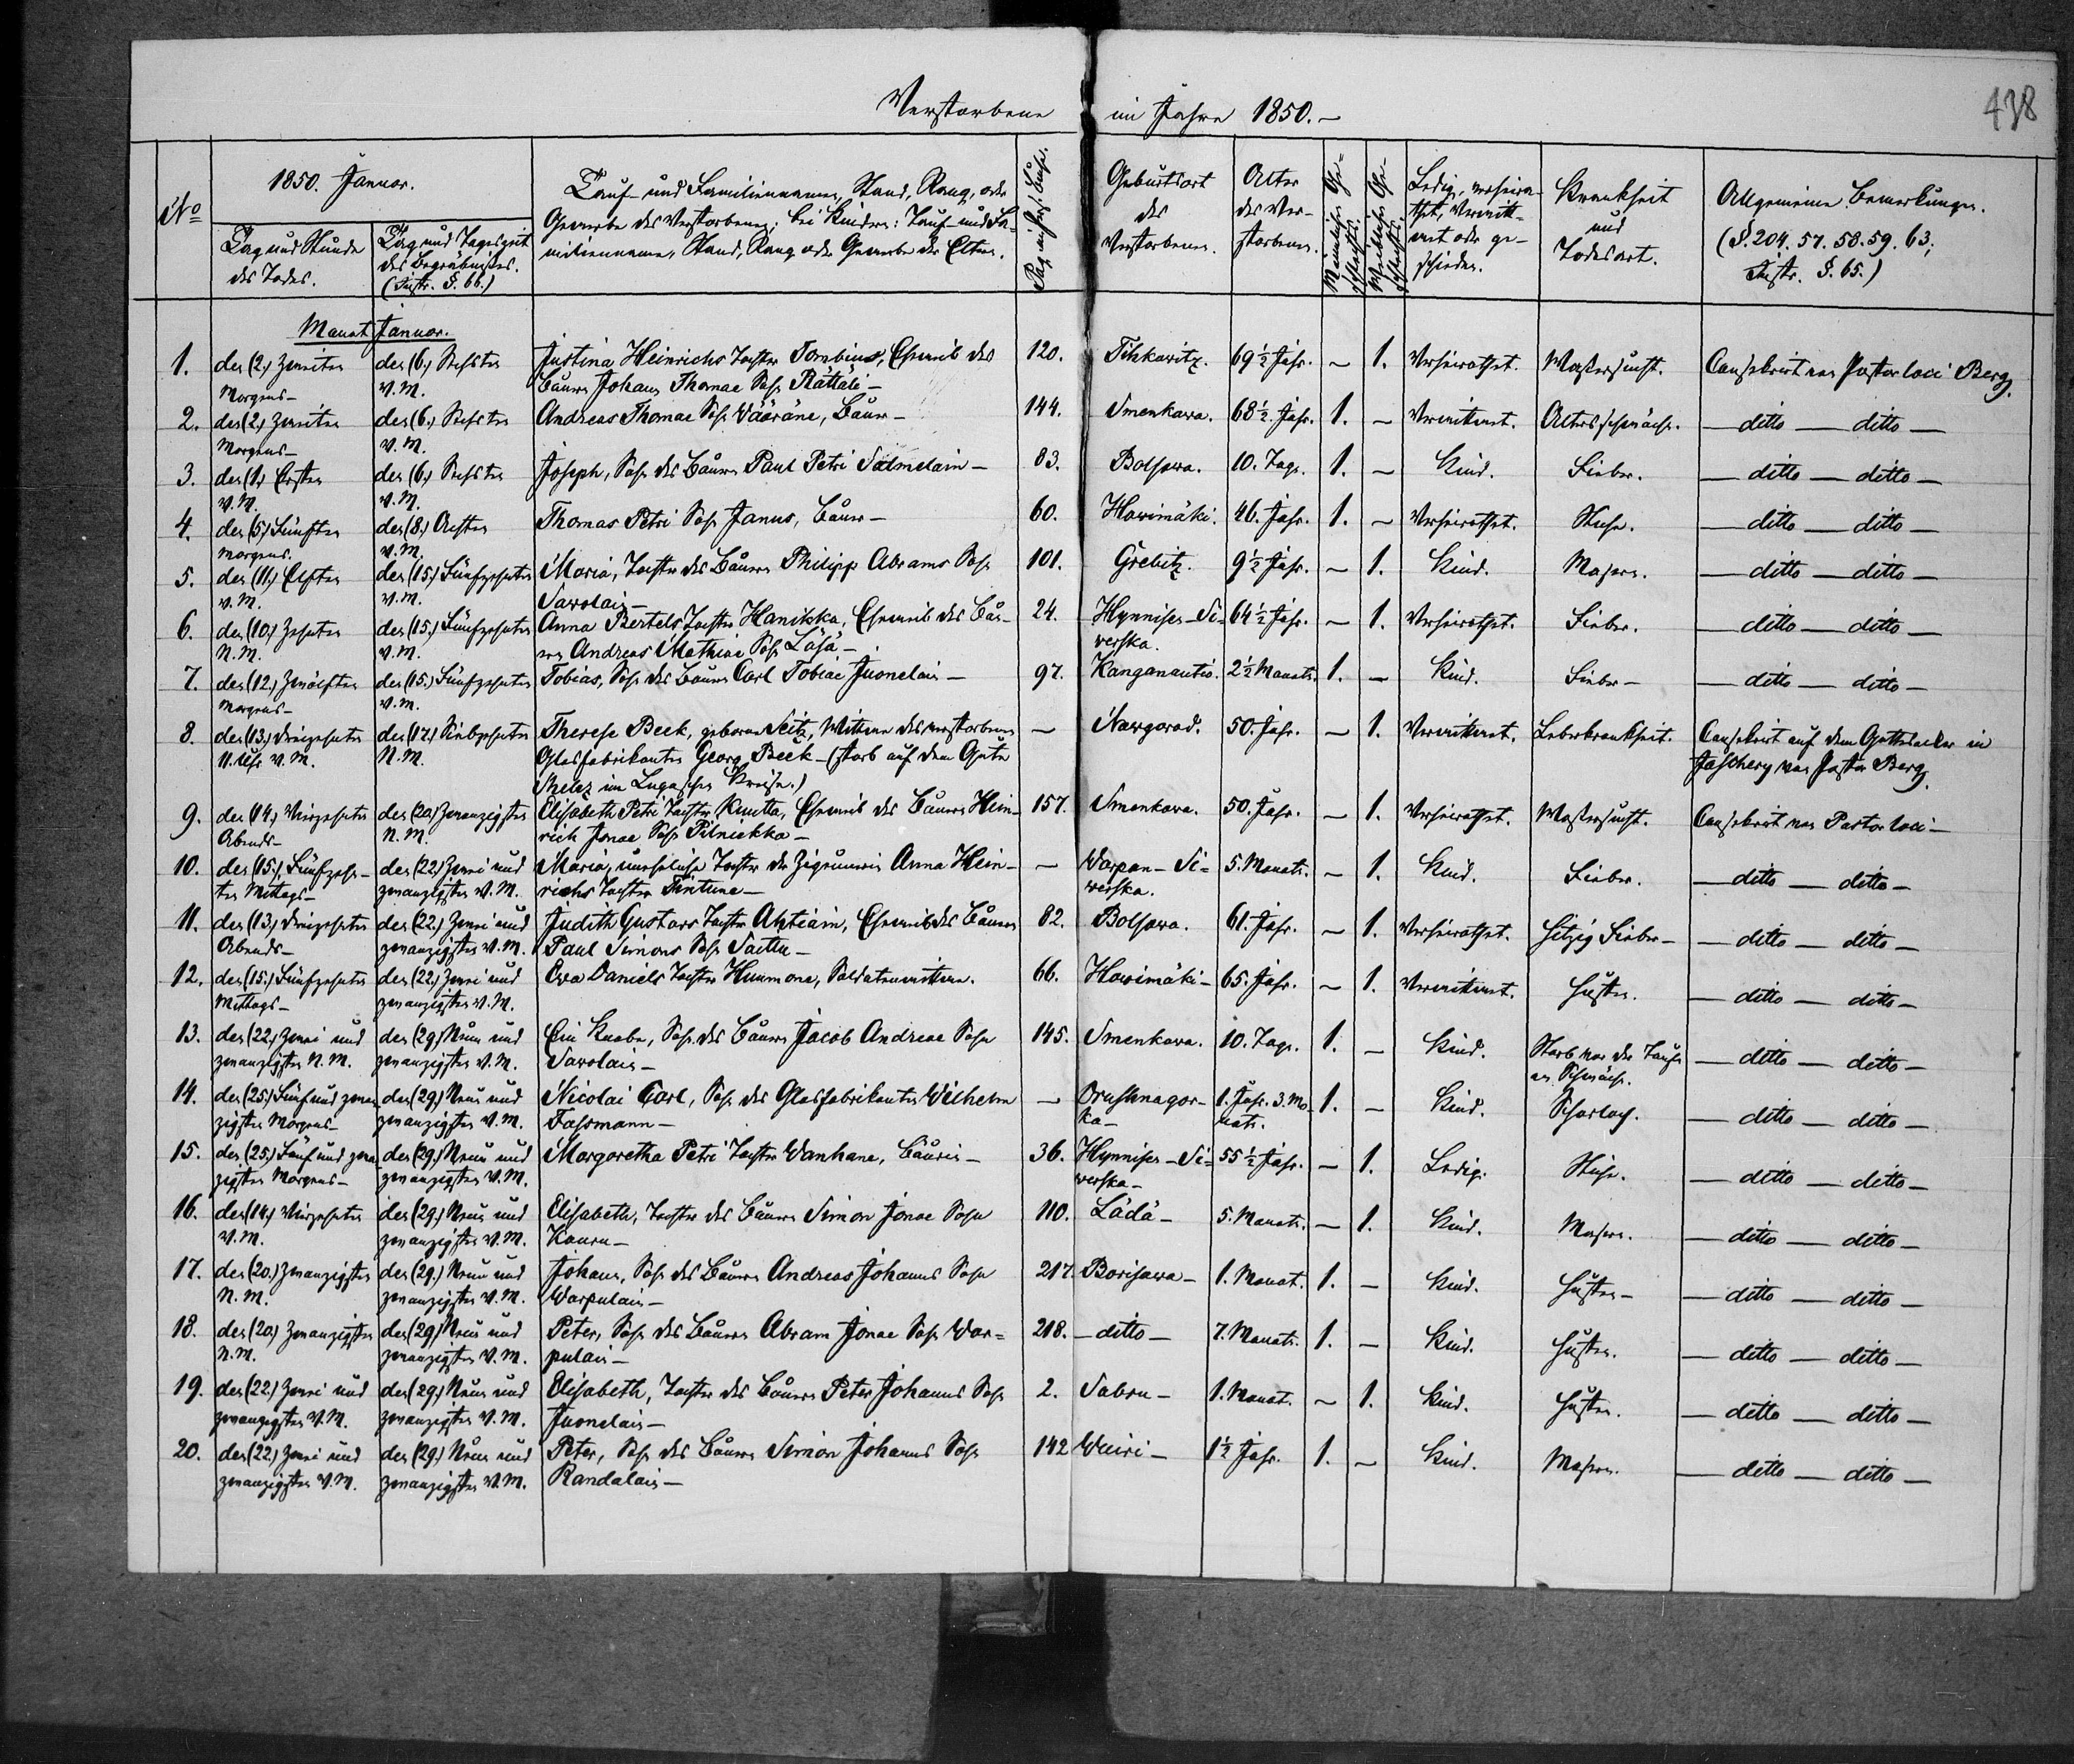 438
Verstorbene im Jahre 1850.—
No
1850. Januar.
Tag und Stunde des Todes.
Tag und Tageszeit des Begräbnisses. (Instr. §. 66.)
Tauf- und Familienname, Stand, Rang, oder
Gewerbe des Verstorbenen; bei Kindern: Tauf- und Fa-
miliennamen, Stand, Rang oder Gewerbe der Eltern.
Geburtsort des Verstorbenen.
Alter des Ver-storbenen.
Männlichen Ge-schlechts.
Weiblichen Ge-schlechts.
Ledig, verheira-thet, verwitt-wet oder ge-schieden.
Krankheit und Todesart.
Allgemeine Bemerkungen. (§. 204. 57. 58. 59. 63; Instr. §. 65.)
Monat Januar.
1. den (2.) Zweiten den (6.) Sechsten Justina Heinrichs Tochter Eheweib des 120. 69½ Jahr. – 1. Verheirathet. Wassersucht. Consekrirt von Pastor loci Berg.
Morgens– V.M. Bauern Johann Thomae Sohn Rättäli–
2. den (2.) Zweiten den (6.) Sechsten Andreas Thomae Sohn Wääräne, Bauer– 144. Smenkowa. 68½. Jahr. 1. – Verwittwet. Altersschwäche. — ditto — ditto —
Morgens– V.M.
3. den (1.) Ersten den (6.) Sechsten Joseph, Sohn des Bauern Paul Petri Salmelain– 83. Bolsowa. 10. Tage. 1. – Kind. Fieber. — ditto — ditto —
V.M. V.M.
4. den (5.) Fünften den (8.) Achten Thomas Petri Sohn Janus, Bauer– 60. Howimäki. 46. Jahr. 1. – Verheirathet. — ditto — ditto —
Morgens. V.M.
5. den (11.) Elften den (15.) Fünfzehnten Maria, Tochter des Bauern Philipp Abrams Sohn 101. Grebitz. 9½ Jahr. – 1. Kind. Masern. — ditto — ditto —
V.M. V.M. Sawolain–
6. den (10.) Zehnten den (15.) Fünfzehnten Anna Bertels Tochter Hanikka, Eheweib des Bau- 24. Hynnisen-Si- 64½ Jahr. – 1. Verheirathet. Fieber. — ditto — ditto —
N.M. V.M. ern Andreas Mathiae Sohn Läsä– werska.
7. den (12.) Zwölften den (15.) Fünfzehnten Tobias, Sohn des Bauern Carl Tobiae Juonelain– 97. 2½ Monate. 1. – Kind. Fieber– — ditto — ditto —
Morgens– V.M.
8. den (13.) Dreizehnten den (17.) Siebzehnten Therese Beck, geborene Seitz, Wittwe des verstorbenen — Nowgorod. 50. Jahr. – 1. Verwittwet. Leberkrankheit. Consekrirt auf dem Gottesacker in
11. Uhr V.M. N.M. Glasfabrikanten Georg Beck–(starb auf dem Gute von Pastor Berg.
im Lugaschen Kreise.)
9. den (14.) Vierzehnten den (20.) Zwanzigsten Elisabeth Petri Tochter Eheweib des Bauern Hein- 157. Smenkowa. 50. Jahr. – 1. Verheirathet. Wassersucht. Consekrirt von Pastor loci–
Abends– N.M. rich Jonae Sohn Pilniekka–
10. den (15.) Fünfzehn- den (22.) Zwei und Maria, uneheliche Tochter der Zigeunerin Anna Hein- — Worpan-Si- 5. Monate. – 1. Kind. Fieber. — ditto — ditto —
ten Mittags– zwanzigsten V.M. richs Tochter werska.
11. den (13.) Dreizehnten den (22.) Zwei und Judith Gustavs Tochter Ahtiain, Eheweib des Bauern 82. Bolsowa. 61. Jahr. – 1. Verheirathet. Hitzig Fieber– — ditto — ditto —
Abends– zwanzigsten V.M. Paul Simons Sohn
12. den (15.) Fünfzehnten den (22.) Zwei und Eva Daniels Tochter Hummona, Soldatenwittwe. 66. Howimäki– 65. Jahr. – 1. Verwittwet. Husten. — ditto — ditto —
Mittags– zwanzigsten V.M.
13. den (22.) Zwei und den (29.) Neun und Ein Knabe, Sohn des Bauern Jacob Andreae Sohn 145. Smenkowa. 10. Tage. 1. – Kind. Starb vor der Taufe — ditto — ditto —
zwanzigsten N.M. zwanzigsten V.M. Sawolain– an Schwäche.
14. den (25.) Fünf und zwan- den (29.) Neun und Nicolai Carl, Sohn des Glasfabrikanten Wilhelm — 1. Jahr. 3. Mo- 1. – Kind. Scharlach. — ditto — ditto —
zigsten Morgens– zwanzigsten V.M. Fassmann– ka– nate.
15. den (25.) Fünf und zwan- den (29.) Neun und Margaretha Petri Tochter Wanhane, Bäuerin– 36. Hynnisen-Si- 55½ Jahr. – 1. Ledig. — ditto — ditto —
zigsten Morgens– zwanzigsten V.M. werska–
16. den (14.) Vierzehnten den (29.) Neun und Elisabeth, Tochter des Bauern Simon Jonae Sohn 110. Lädä– 5. Monate. – 1. Kind. Masern. — ditto — ditto —
V.M. zwanzigsten V.M.
17. den (20.) Zwanzigsten den (29.) Neun und Johann, Sohn des Bauern Andreas Johanns Sohn 217. Borisowa– 1. Monat. 1. – Kind. Husten– — ditto — ditto —
N.M. zwanzigsten V.M. Worpulain–
18. den (20.) Zwanzigsten den (29.) Neun und Peter, Sohn des Bauern Abram Jonae Sohn Wor- 218. —ditto— 7. Monate. 1. – Kind. Husten. — ditto — ditto —
N.M. zwanzigsten V.M. pulain–
19. den (22.) Zwei und den (29.) Neun und Elisabeth, Tochter des Bauern Peter Johanns Sohn 2. Sabru– 1. Monat. – 1. Kind. Husten. — ditto — ditto —
zwanzigsten V.M. zwanzigsten V.M. Juonelain–
20. den (22.) Zwei und den (29.) Neun und Peter, Sohn des Bauern Simon Johanns Sohn 142 Wuiri– 1½ Jahr. 1. – Kind. Masern. — ditto — ditto —
zwanzigsten V.M. zwanzigsten V.M. Randalain–